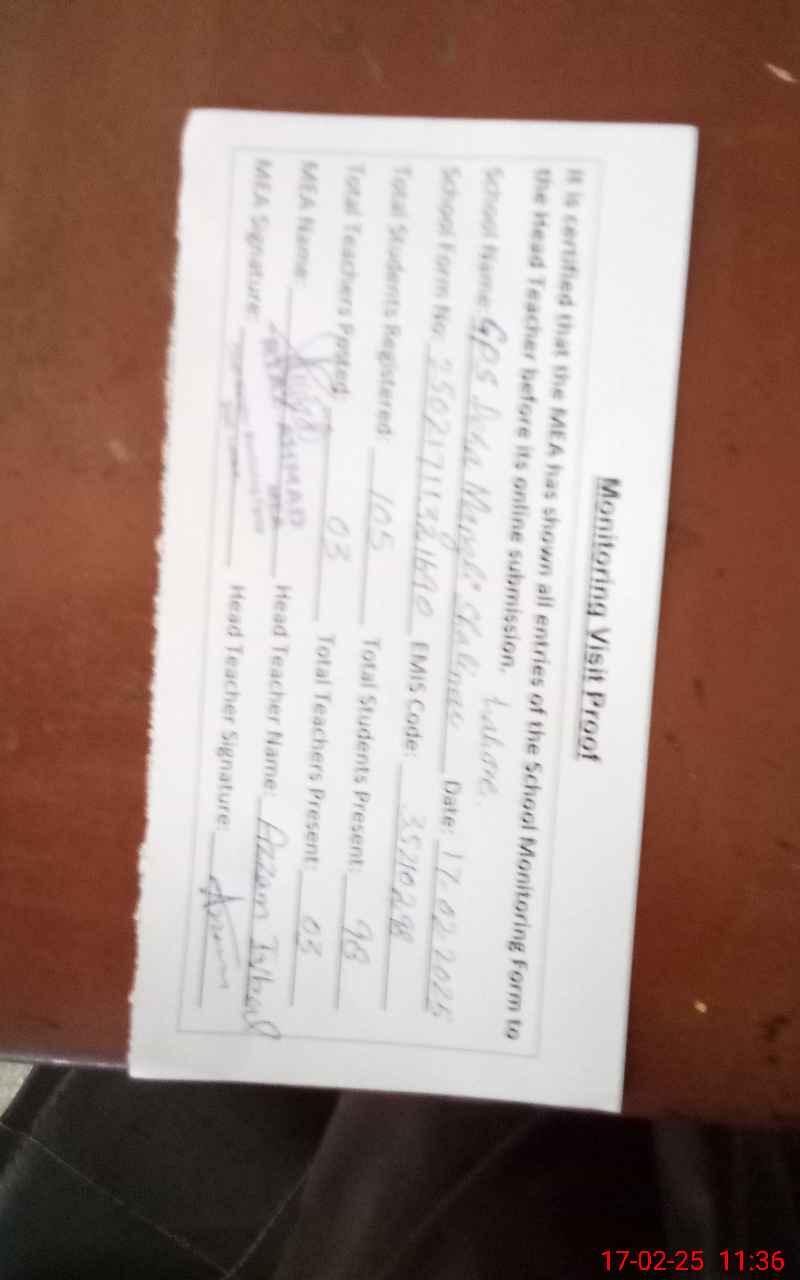 Monitoring Visit Proof
It is certified that the MEA has shown all entries of the School Monitoring Form to
the Head Teacher before its online submission.
School Name: GPS Lahore. Date: 17-02-2025
School Form No: EMIS Code: 35210298
Total Students Registered: 105 Total Students Present: 98
Total Teachers Posted: 03 Total Teachers Present: 03
MEA Name: Head Teacher Name: Azzam Iqbal
MEA Signature: Head Teacher Signature:
17-02-25 11:36